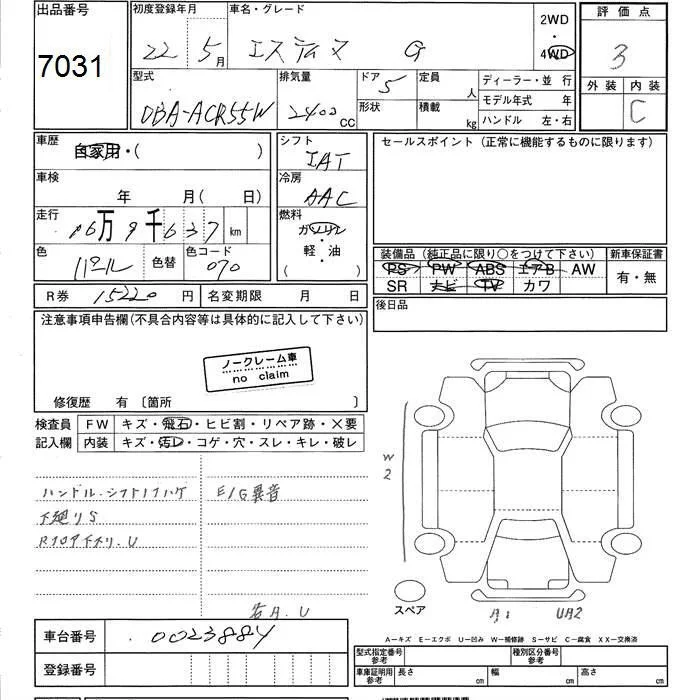 出品番号
7031
初度登録年月
22 5月
車名・グレード
エスティマ G
2WD
・
4WD
評価点
3
外装 内装
C
型式
DBA-ACR55W
排気量
2400cc
ドア
5
形状
定員
人
積載
kg
ディーラー・並行
モデル年式 年
ハンドル 左・右
車歴
自家用・( )
車検
年 月( 日)
走行
16万9千637km
色
パール
色替
色コード
070
シフト
IAT
冷房
AAC
燃料
ガソリン
軽・油
( )
セールスポイント(正常に機能するものに限ります)
装備品(純正品に限り○をつけて下さい)
PS PW ABS エアB AW
SR ナビ TV カワ
新車保証書
有・無
R券 15220円
名変期限 月 日
後日品
注意事項申告欄(不具合内容等は具体的に記入して下さい)
ノークレーム車
no claim
修復歴 有 〔箇所 〕
検査員
記入欄
FW キズ・飛石・ヒビ割・リペア跡・×要
内装 キズ・汚レ・コゲ・穴・スレ・キレ・破レ
ハンドル・シフトノブハゲ
下廻りS
E/G異音
W2
スペア
A1
UA2
A-キズ E-エクボ U-凹み W-補修跡 S-サビ C-腐食 XX-交換済
車台番号
0023884
登録番号
型式指定番号
参考
種別区分番号
参考
車庫証明用
参考
長さ cm
幅 cm
高さ cm